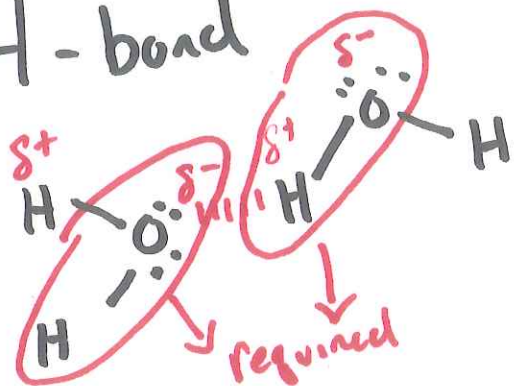 H-bond
δ-
δ+ δ- δ+ O H
H O H
H
required